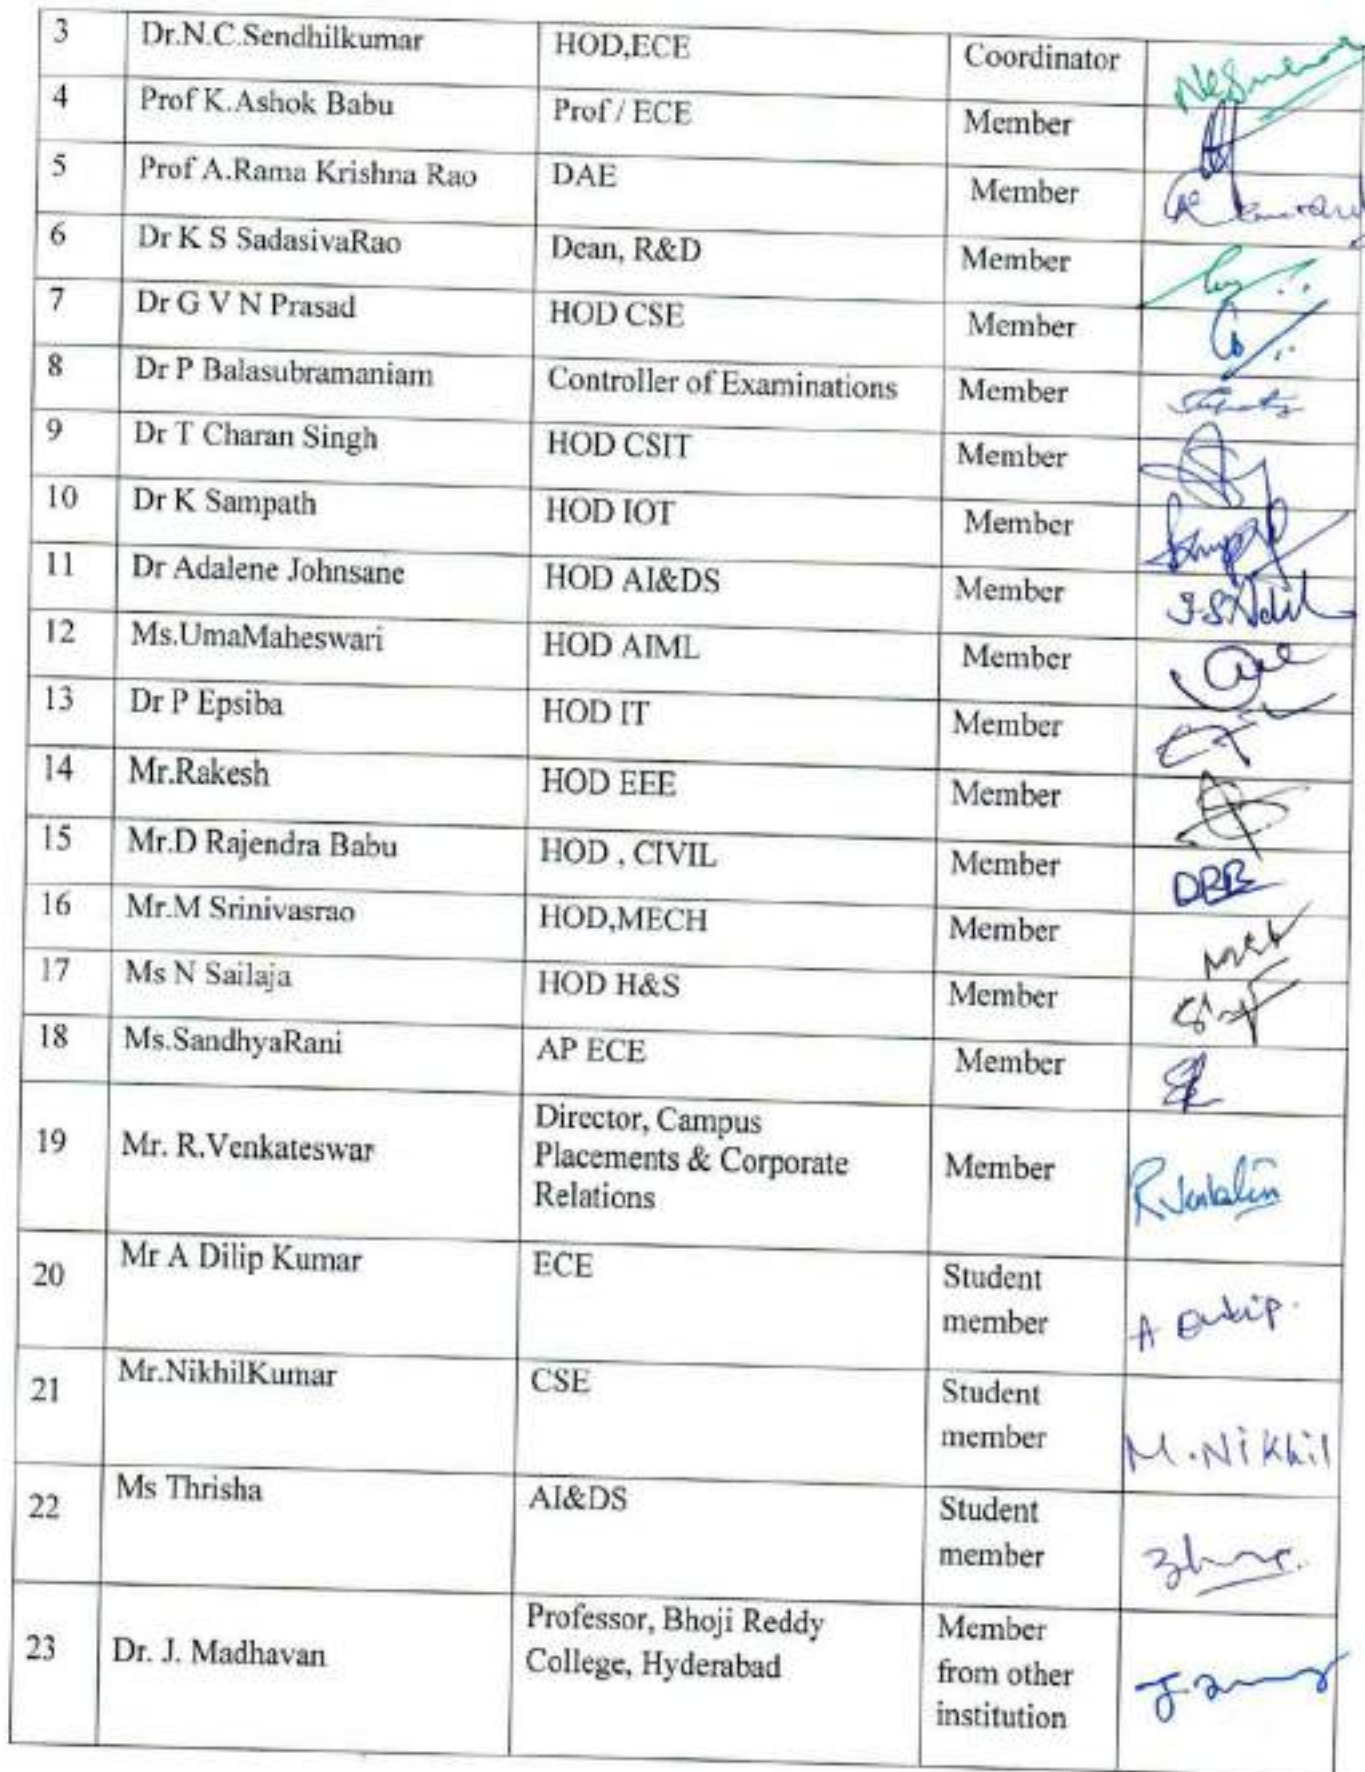 3 Dr.N.C.Sendhilkumar HOD,ECE Coordinator
4 Prof K.Ashok Babu Prof / ECE Member
5 Prof A.Rama Krishna Rao DAE Member
6 Dr K S SadasivaRao Dean, R&D Member
7 Dr G V N Prasad HOD CSE Member
8 Dr P Balasubramaniam Controller of Examinations Member
9 Dr T Charan Singh HOD CSIT Member
10 Dr K Sampath HOD IOT Member
11 Dr Adalene Johnsane HOD AI&DS Member
12 Ms.UmaMaheswari HOD AIML Member
13 Dr P Epsiba HOD IT Member
14 Mr.Rakesh HOD EEE Member
15 Mr.D Rajendra Babu HOD , CIVIL Member DRB
16 Mr.M Srinivasrao HOD,MECH Member
17 Ms N Sailaja HOD H&S Member
18 Ms.SandhyaRani AP ECE Member
19 Mr. R.Venkateswar Director, Campus
Placements & Corporate
Relations Member
20 Mr A Dilip Kumar ECE Student
member
21 Mr.NikhilKumar CSE Student
member M.Nikhil
22 Ms Thrisha AI&DS Student
member
23 Dr. J. Madhavan Professor, Bhoji Reddy
College, Hyderabad Member
from other
institution